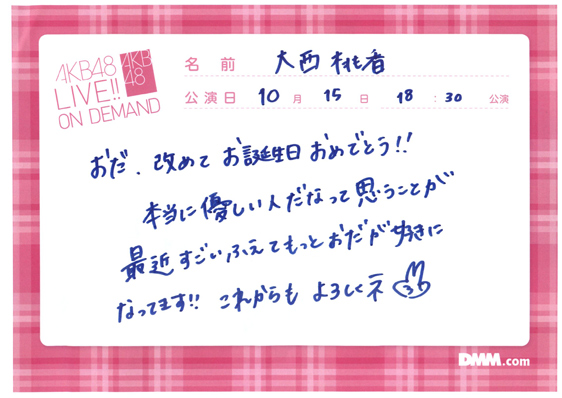 AKB48
LIVE!!
ON DEMAND
AKB
48
名前 大西桃香
公演日 10月 15日 18:30 公演
おだ、改めて お誕生日 おめでとう!!
本当に優しい人だなって思うことが
最近すごいふえてもっとおだが好きに
なってます!! これからも よろしくネ
DMM.com